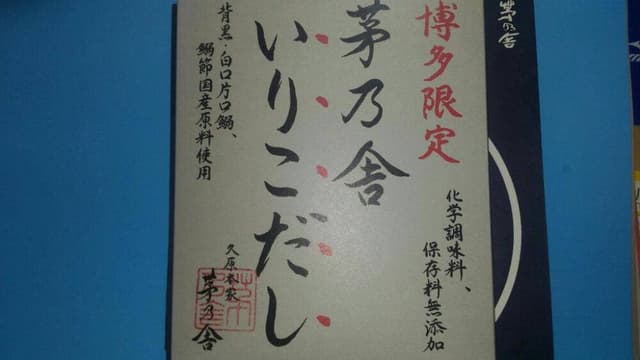 博多限定
茅乃舎
いりこだし
化学調味料、
保存料無添加
背黒・白口片口鰯、
鰯節国産原料使用
久原本家
茅乃舎
茅乃舎